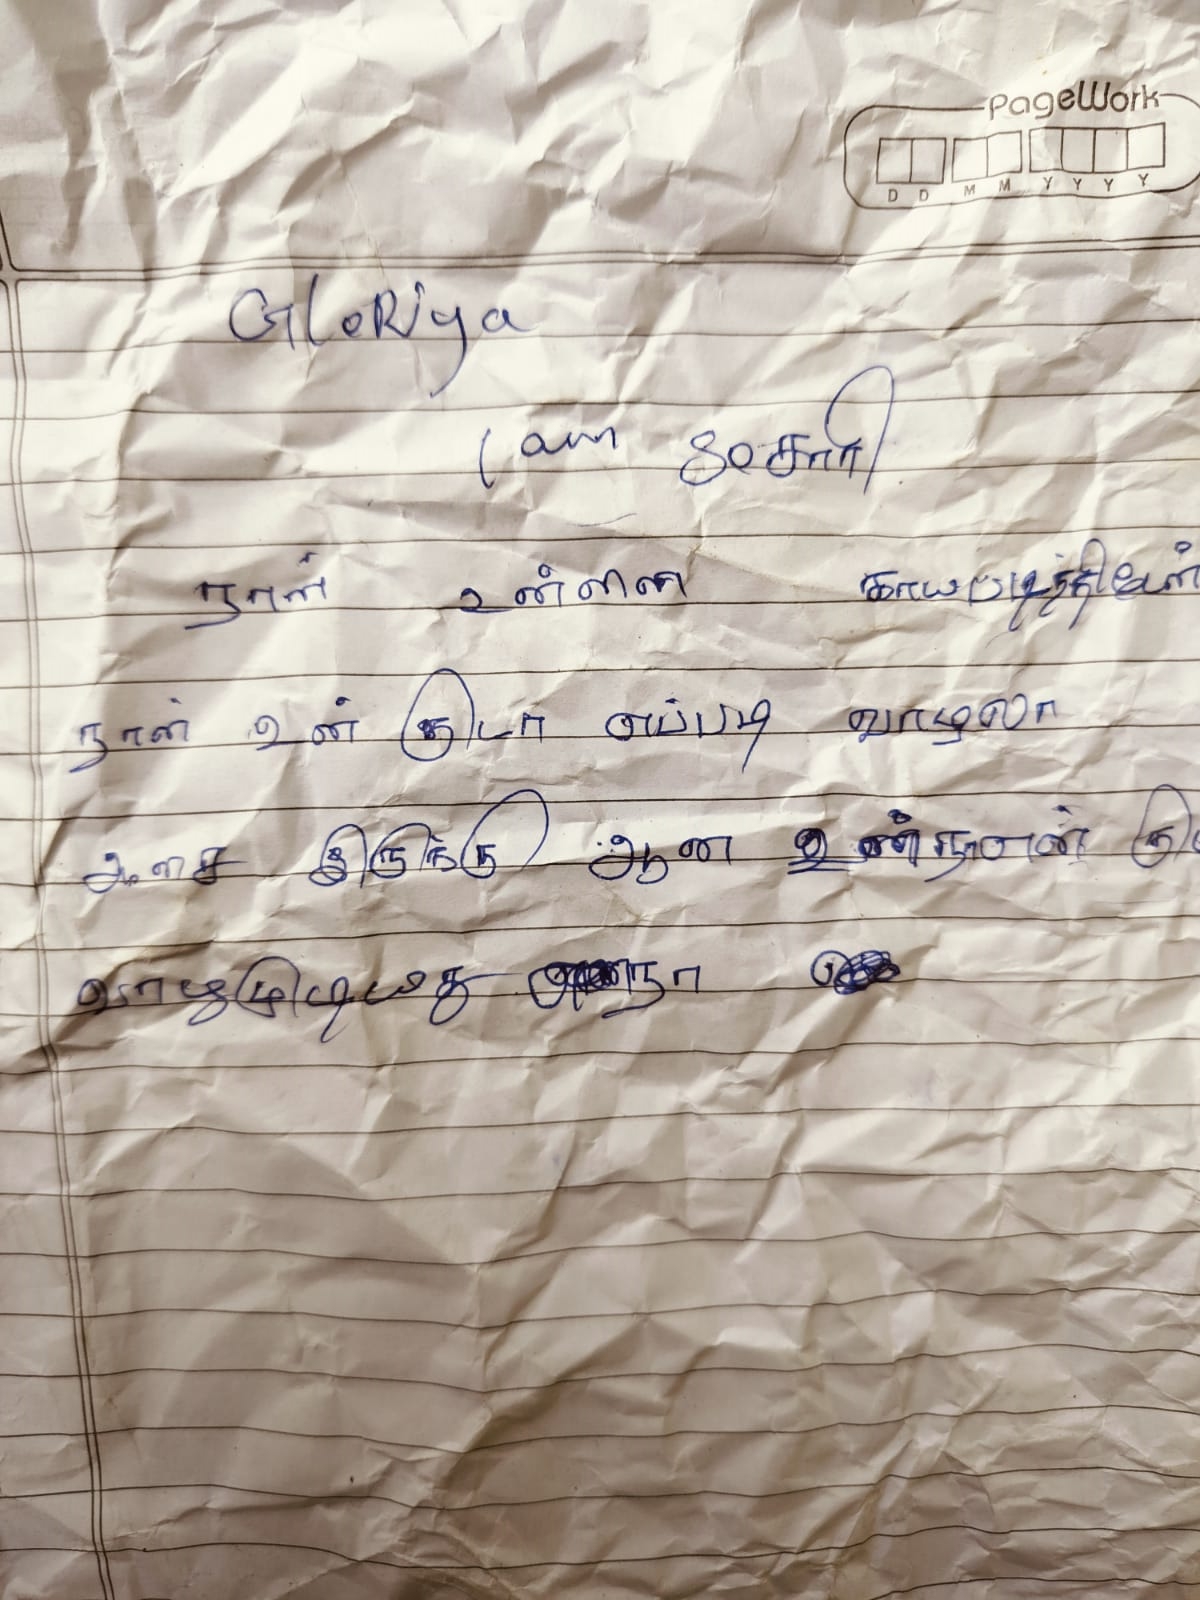 PageWork
D D M M Y Y Y Y
GloRiya
I am
நான் உன்னை
நான் உன் கூடா எப்படி வாழலா
ஆசை இருந்து ஆன உன் நான்
வாழமுடியது நா